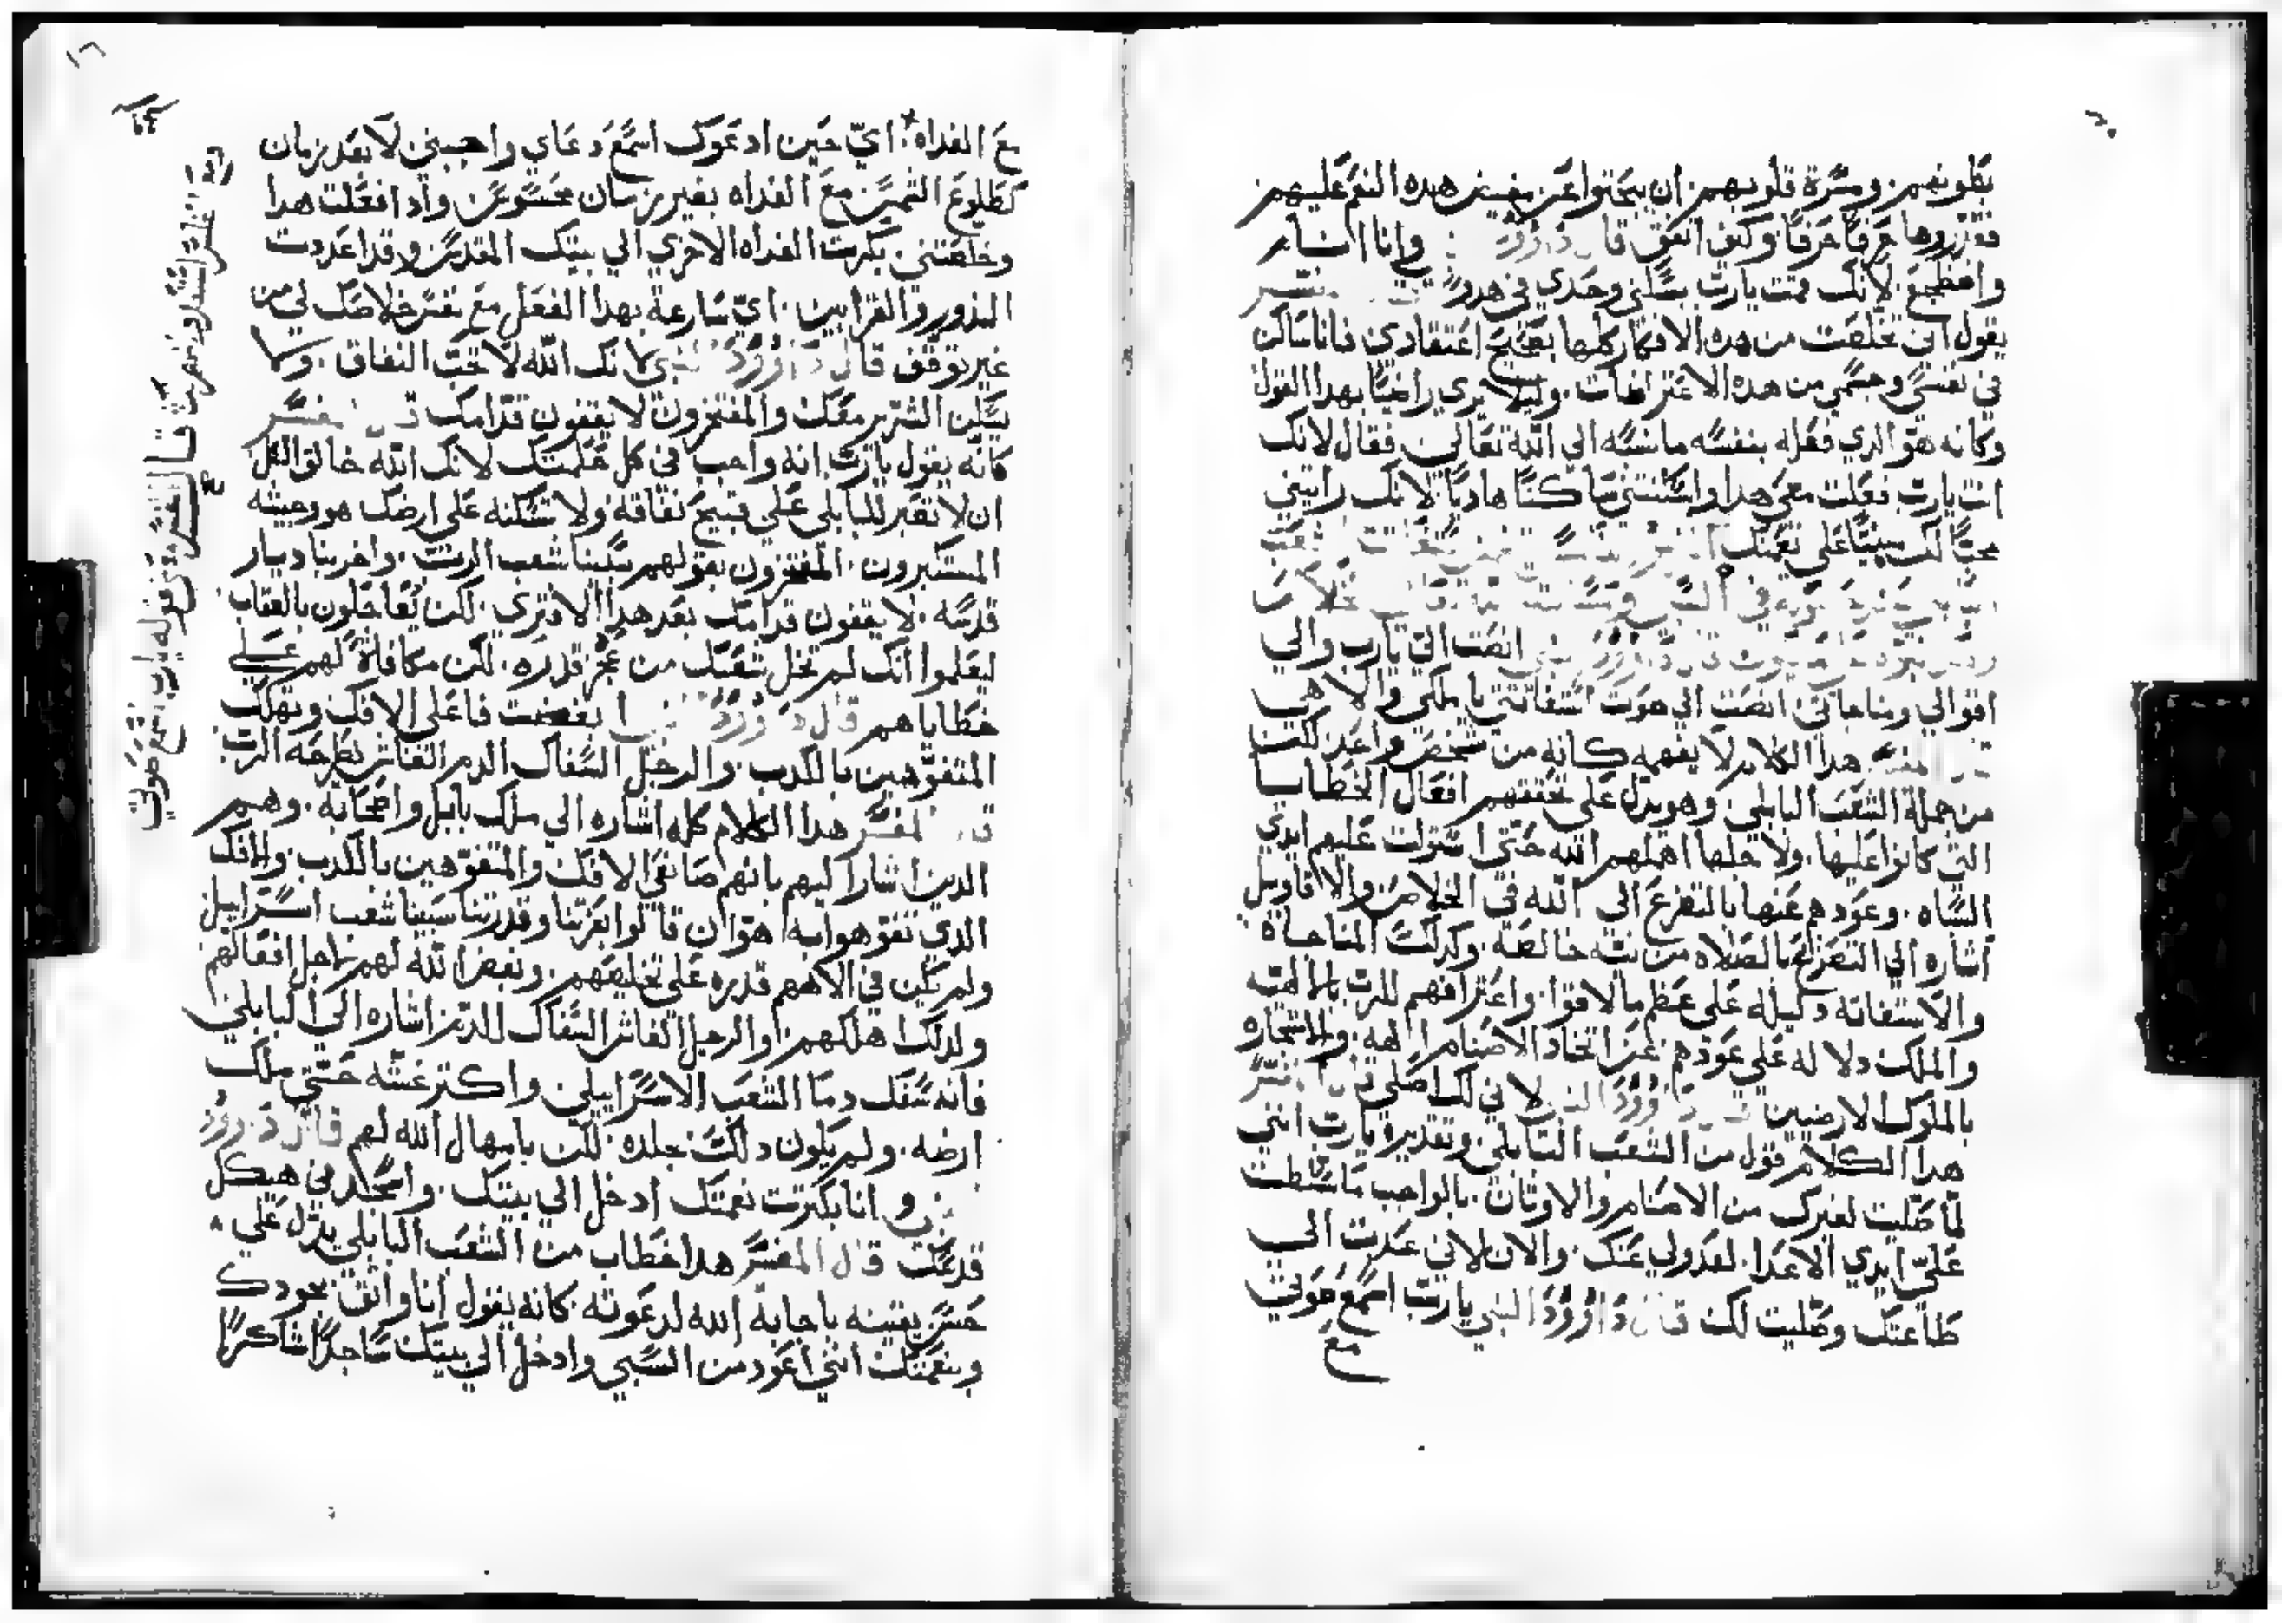 بطونهم. ومسرة قلوبهم. ان يبحتوا عن مفيض هده النعم عليهم
فقزروها حرفا حرفا وكيف اتفق قال داوود وانا انام
واضطجع لانك قمت يارب بسلني وحدي في هدو المفسر
يقول اني تخلصت من هده الافكار كلها بصحيح اعتقادي فانا ساكن
في نفسي وجسمي من هده الاعتراضات. وليلا يري راضيا بهدا القول
وكانه هو الدي فعله بنفسه ما نسبه الي الله تعالي فقال لانك
انت يارب فعلت معي هدا واسكنتني ساكنا هاديا. لانك رايتني
محبا لك مبينا علي نعمتك
في السبي خلاص
قال داوود النبي انصت الي يارب والي
اقوالي ومناجاتي. انصت الي صوت استغاتتي يا ملكي والاهي
المفسر هدا الكلام لا يفهمه كانه من شخص واحد لكن
من جملة الشعب البابلي. وهو يدل علي تحققهم افعال الخطاب
التي كانوا عليها. ولاجلها اهملهم الله حتي استولت عليهم ايدي
السباه. وعودهم عنها بالتضرع الي الله في الخلاص والاقاويل
اشاره الي التضرع بالصلاه من نيه خالصه. وكدلك المناجاة
والاستغاته دليله علي عظم ما لاقوا. واعترافهم للرب بالالهيه
والملك دلاله علي عودهم عن اتخاد الاصنام الهه. والاستجاره
بالملوك الارضيين داوود النبي لاني لك اصلي قال المفسر
هدا الكلام قول من الشعب البابلي وتقديره يارب انني
لما صليت لغيرك من الاصنام والاوتان. بالواجب ما تسلطت
علي ايدي الاعدا. لعدولي عنك. والان لاني عدت الي
طاعتك وصليت لك قال داوود النبي يارب اسمع صوتي
مع
١٦
مع الغداه. اي حين ادعوك اسمع دعاي واجبني لا بعد زمان
كطلوع الشمس مع الغداه بغير زمان محسوس وادا فعلت هدا
وخلصتني بكرت الغداه الاخري الي بيتك المقدس وقد اعددت
الندور والقرابين. اي سارعة بهدا الفعل مع نفس خلاصك لي من
غير توقف قال داوود النبي لانك الله لا تحب النفاق. ولا
يسكن الشرير معك والمفتخرون لا يقفون قدامك قال المفسر
كانه يقول يارب انه واجب في كل حكمتك لانك الله خالق الكل
ان لا تصبر للبابلي علي قبيح نفاقه ولا تسكنه علي ارضك هو وجيشه
المستكبرون. المفتخرون بقولهم سبينا شعب الرب. واخربنا ديار
قدسه. لا يقفون قدامك بعد هدا الافتري. لكن يعاجلون بالعقاب
ليعلموا انك لم تخل شعبك من عجز قدره. لكن مكافاة لهم علي
خطاياهم قال داوود النبي ابغضت فاعلي الافك وتهلك
المتفوهين بالكدب. والرجل السفاك الدم الغاش يطرحه الرب
قال المفسر هدا الكلام كله اشاره الي ملك بابل واصحابه. وهم
الدين اشار اليهم بانهم صانعي الافك والمتفوهين بالكدب. والافك
الدي تفوهوا به هو ان قالوا بعزتنا وقدرتنا سبينا شعب اسراييل
ولم يكن في الاههم قدره علي تخليصهم. وبغض الله لهم لاجل افعالهم
ولدلك اهلكهم. والرجل الغاش السفاك للدم اشاره الي البابلي
فانه سفك دما الشعب الاسراييلي واكتر غشه حتي ملك
ارضه. ولم يكون دلك بجلده. لكن بامهال الله لهم قال داوود
وانا بكترت نعمتك ادخل الي بيتك. واسجد في هيكل
قدسك قال المفسر هدا خطاب من الشعب البابلي يدل علي
حسن يقينه باجابة الله لدعوته. كانه يقول انا واتق بجودك
وبنعمتك انني اعود من السبي وادخل الي بيتك ساجدا شاكرا
قال المفسر في قوله يارب اسمع صوتي